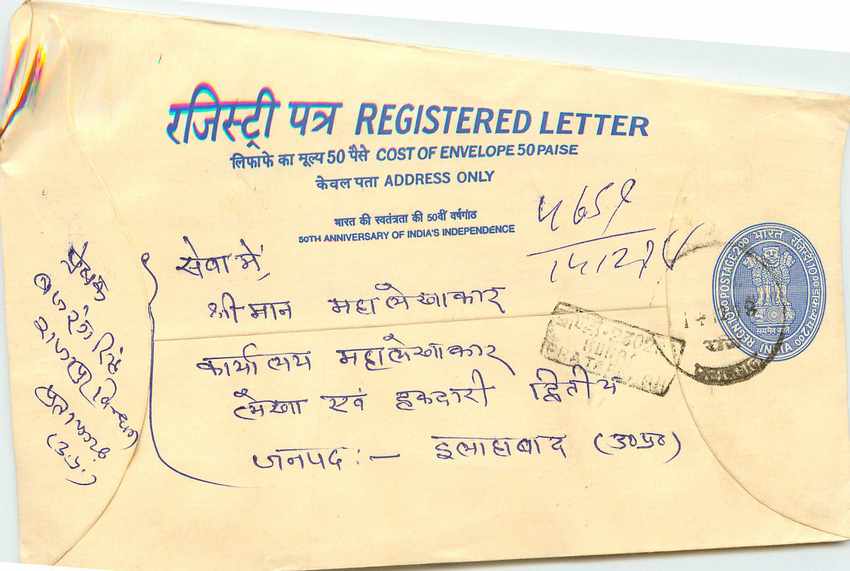 रजिस्ट्री पत्र REGISTERED LETTER
लिफाफे का मूल्य 50 पैसे COST OF ENVELOPE 50 PAISE
केवल पता ADDRESS ONLY
भारत की स्वतंत्रता की 50वीं वर्षगांठ
50TH ANNIVERSARY OF INDIA'S INDEPENDENCE
सेवा में,
श्रीमान महालेखाकार
कार्यालय महालेखाकार
लेखा एवं हकदारी द्वितीय
जनपद :— इलाहाबाद (उ०प्र०)
प्रेषक
बजरंग सिंह
प्रतापगढ़
(उ.प्र.)
भारत INDIA